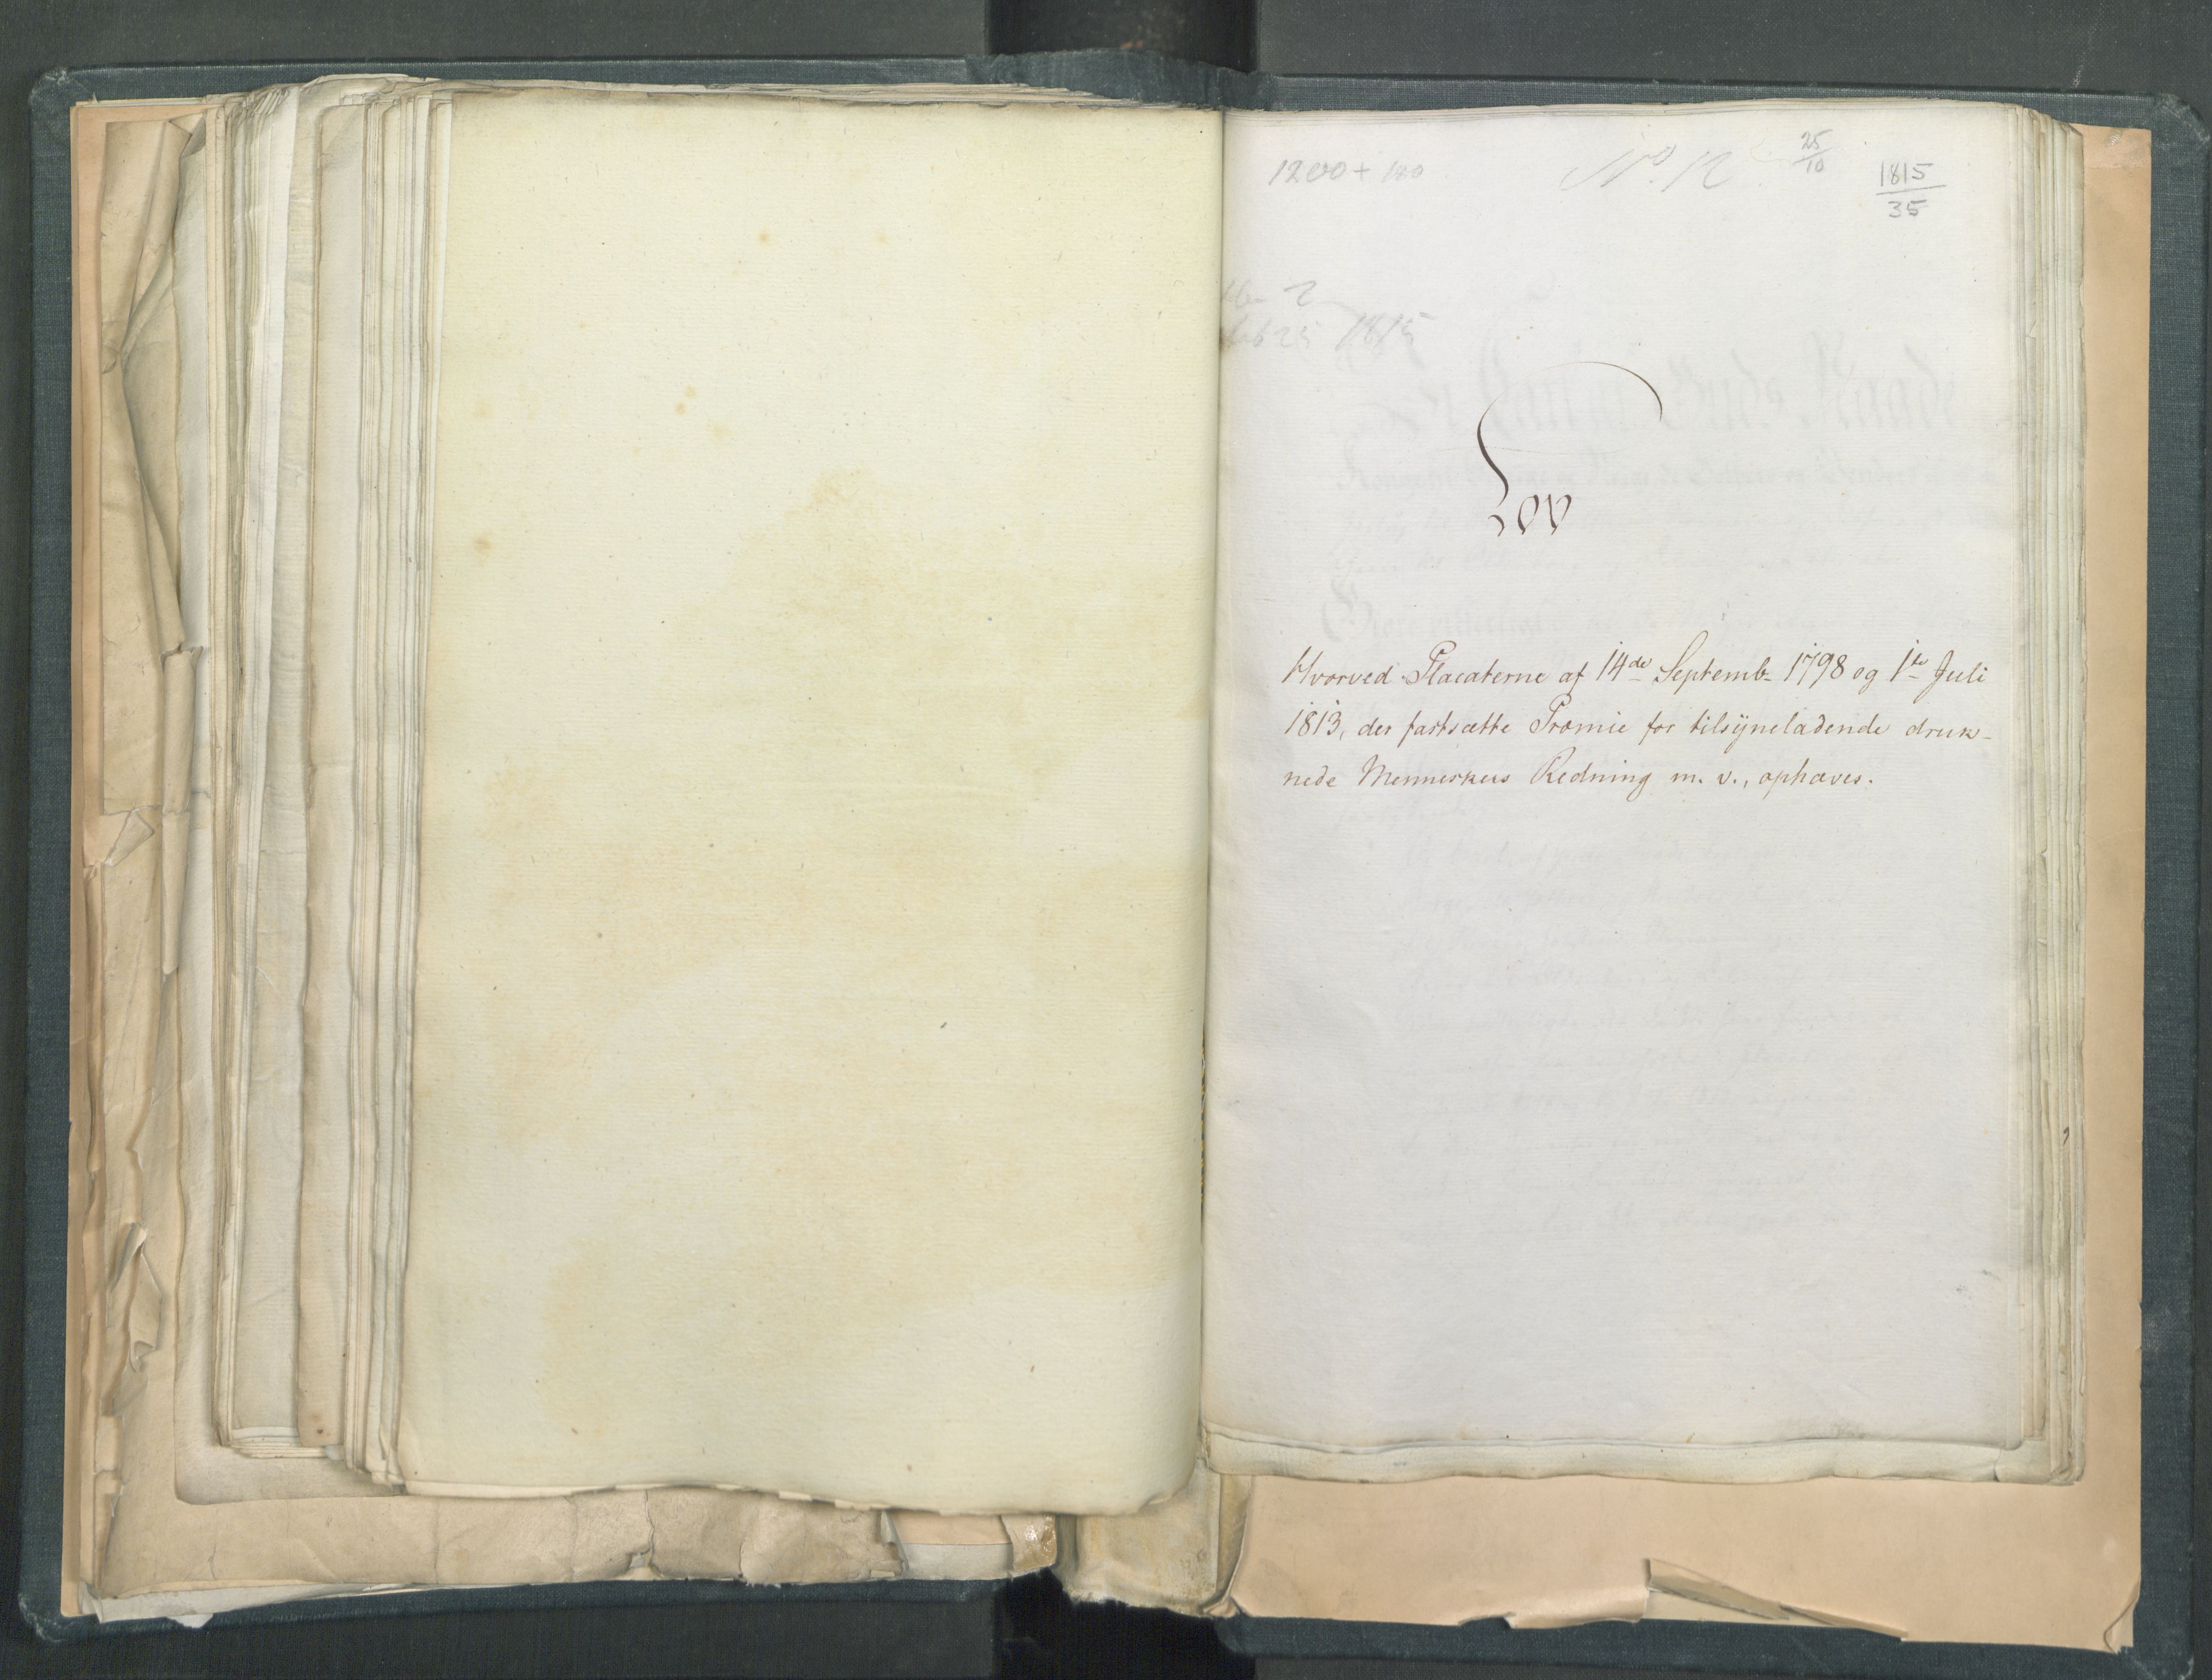 1200 + 120
No. 12
25/10
1815/35
1815
Lov
Hvorved Placaterne af 14de Septemb. 1798 og 1ste Juli
1813, der fastsætte Præmie for tilsÿneladende druk-
nede Menneskers Redning m. v., ophæves.